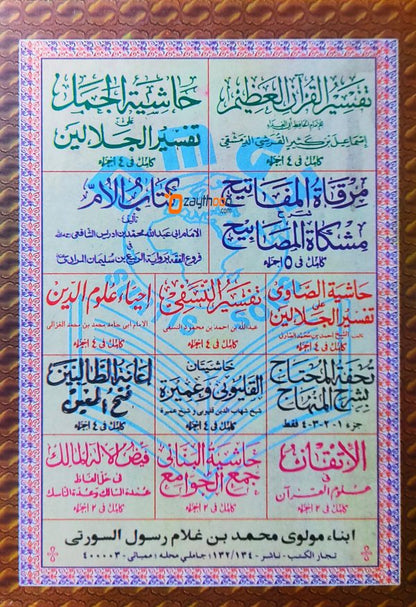 تفسير القرآن العظيم
للامام الحافظ ابي الفداء
اسماعيل بن كثير القرشي الدمشقي
كامل في ٤ اجزاء
حاشية الجمل
على
تفسير الجلالين
كامل في ٤ اجزاء
مرقاة المفاتيح
شرح
مشكاة المصابيح
كامل في ٥ اجزاء
كتاب الأم
تأليف
الامام ابي عبد الله محمد بن ادريس الشافعي
في
فروع الفقه برواية الربيع بن سليمان المرادي
كامل في ٤ اجزاء
zaythoon
.com
حاشية الصاوي
على
تفسير الجلالين
كامل في ٤ اجزاء
تفسير النسفي
عبد الله بن احمد بن محمود النسفي
كامل في ٤ اجزاء
احياء علوم الدين
الامام ابي حامد محمد بن محمد الغزالي
كامل في ٤ اجزاء
تحفة المحتاج
بشرح المنهاج
جزء ١-٢-٣-٤ فقط
حاشيتان
القليوبي وعميرة
شيخ شهاب الدين قليوبي وشيخ عميرة
كامل في ٤ اجزاء
اعانة الطالبين
فتح المعين
كامل في ٤ اجزاء
الاتقان
في
علوم القرآن
كامل في ٢ اجزاء
حاشية البناني
جمع الجوامع
كامل في ٢ اجزاء
فيض الاله المالك
في حل الفاظ
عمدة السالك وعدة الناسك
كامل في ٢ اجزاء
ابناء مولوي محمد بن غلام رسول السورتي
تجار الكتب - ناشر - ١٣٢/١٣٤؛ جاملي محله؛ ممبائي - ٤٠٠٠٠٣